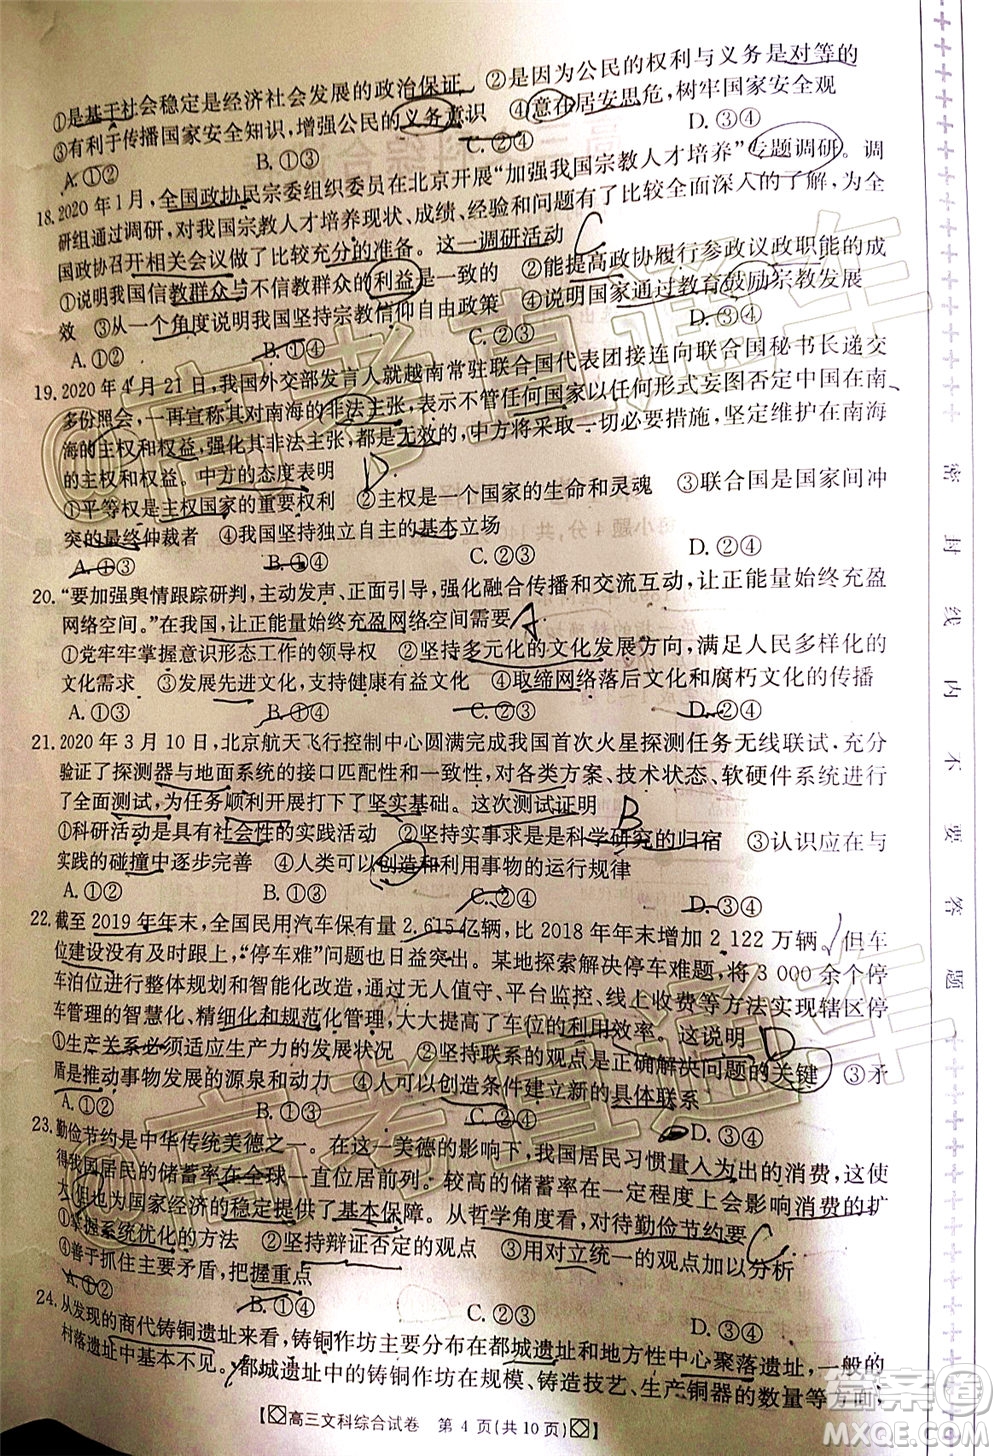 ①是基于社会稳定是经济社会发展的政治保证 ②是因为公民的权利与义务是对等的
③有利于传播国家安全知识，增强公民的义务意识 ④意在居安思危，树牢国家安全观
A.①② B.①③ C.②④ D.③④
18.2020年1月，全国政协民宗委组织委员在北京开展“加强我国宗教人才培养”专题调研。调
研组通过调研，对我国宗教人才培养现状、成绩、经验和问题有了比较全面深入的了解，为全
国政协召开相关会议做了比较充分的准备。这一调研活动 C
①说明我国信教群众与不信教群众的利益是一致的 ②能提高政协履行参政议政职能的成
效 ③从一个角度说明我国坚持宗教信仰自由政策 ④说明国家通过教育鼓励宗教发展
A.①② B.①④ C.②③ D.③④
19.2020年4月21日，我国外交部发言人就越南常驻联合国代表团接连向联合国秘书长递交
多份照会，一再宣称其对南海的非法主张，表示不管任何国家以任何形式妄图否定中国在南
海的主权和权益，强化其非法主张，都是无效的，中方将采取一切必要措施，坚定维护在南海
的主权和权益。中方的态度表明 D
①平等权是主权国家的重要权利 ②主权是一个国家的生命和灵魂 ③联合国是国家间冲
突的最终仲裁者 ④我国坚持独立自主的基本立场
A.①③ B.①④ C.②③ D.②④
20.“要加强舆情跟踪研判，主动发声、正面引导，强化融合传播和交流互动，让正能量始终充盈
网络空间。”在我国，让正能量始终充盈网络空间需要 A
①党牢牢掌握意识形态工作的领导权 ②坚持多元化的文化发展方向，满足人民多样化的
文化需求 ③发展先进文化，支持健康有益文化 ④取缔网络落后文化和腐朽文化的传播
A.①③ B.①④ C.②③ D.②④
21.2020年3月10日，北京航天飞行控制中心圆满完成我国首次火星探测任务无线联试，充分
验证了探测器与地面系统的接口匹配性和一致性，对技术方案、技术状态、软硬件系统进行
了全面测试，为任务顺利开展打下了坚实基础。这次测试证明 B
①科研活动是具有社会性的实践活动 ②坚持实事求是是科学研究的归宿 ③认识应在与
实践的碰撞中逐步完善 ④人类可以创造和利用事物的运行规律
A.①② B.①③ C.②④ D.③④
22.截至2019年年末，全国民用汽车保有量2.615亿辆，比2018年年末增加2 122万辆，但车
位建设没有及时跟上，“停车难”问题日益突出。某地探索解决停车难题，将3 000余个停
车泊位进行整体规划和智能化改造，通过无人值守、平台监控、线上收费等方法实现辖区停
车管理的智慧化、精细化和规范化管理，大大提高了车位的利用效率。这说明 D
①生产关系必须适应生产力的发展状况 ②坚持联系的观点是正确解决问题的关键 ③矛
盾是推动事物发展的源泉和动力 ④人可以创造条件建立新的具体联系
A.①② B.①③ C.②④ D.③④
23.勤俭节约是中华传统美德之一。在这一美德的影响下，我国居民习惯量入为出的消费，这使
得我国居民的储蓄率在全球一直位居前列。较高的储蓄率在一定程度上会影响消费的扩
大，但也为国家经济的稳定提供了基本保障。从哲学角度看，对待勤俭节约要 C
①掌握系统优化的方法 ②坚持辩证否定的观点 ③用对立统一的观点加以分析
④善于抓住主要矛盾，把握重点
A.①② B.①④ C.②③ D.③④
24.从发现的商代铸铜遗址来看，铸铜作坊主要分布在都城遗址和地方性中心聚落遗址，一般的
村落遗址中基本不见。都城遗址中的铸铜作坊在规模、铸造技艺、生产铜器的数量等方面，
【高三文科综合试卷 第4页(共10页)】
密封线内不要答题
@高考直通车
@高考直通车
答案圈
MXQE.COM